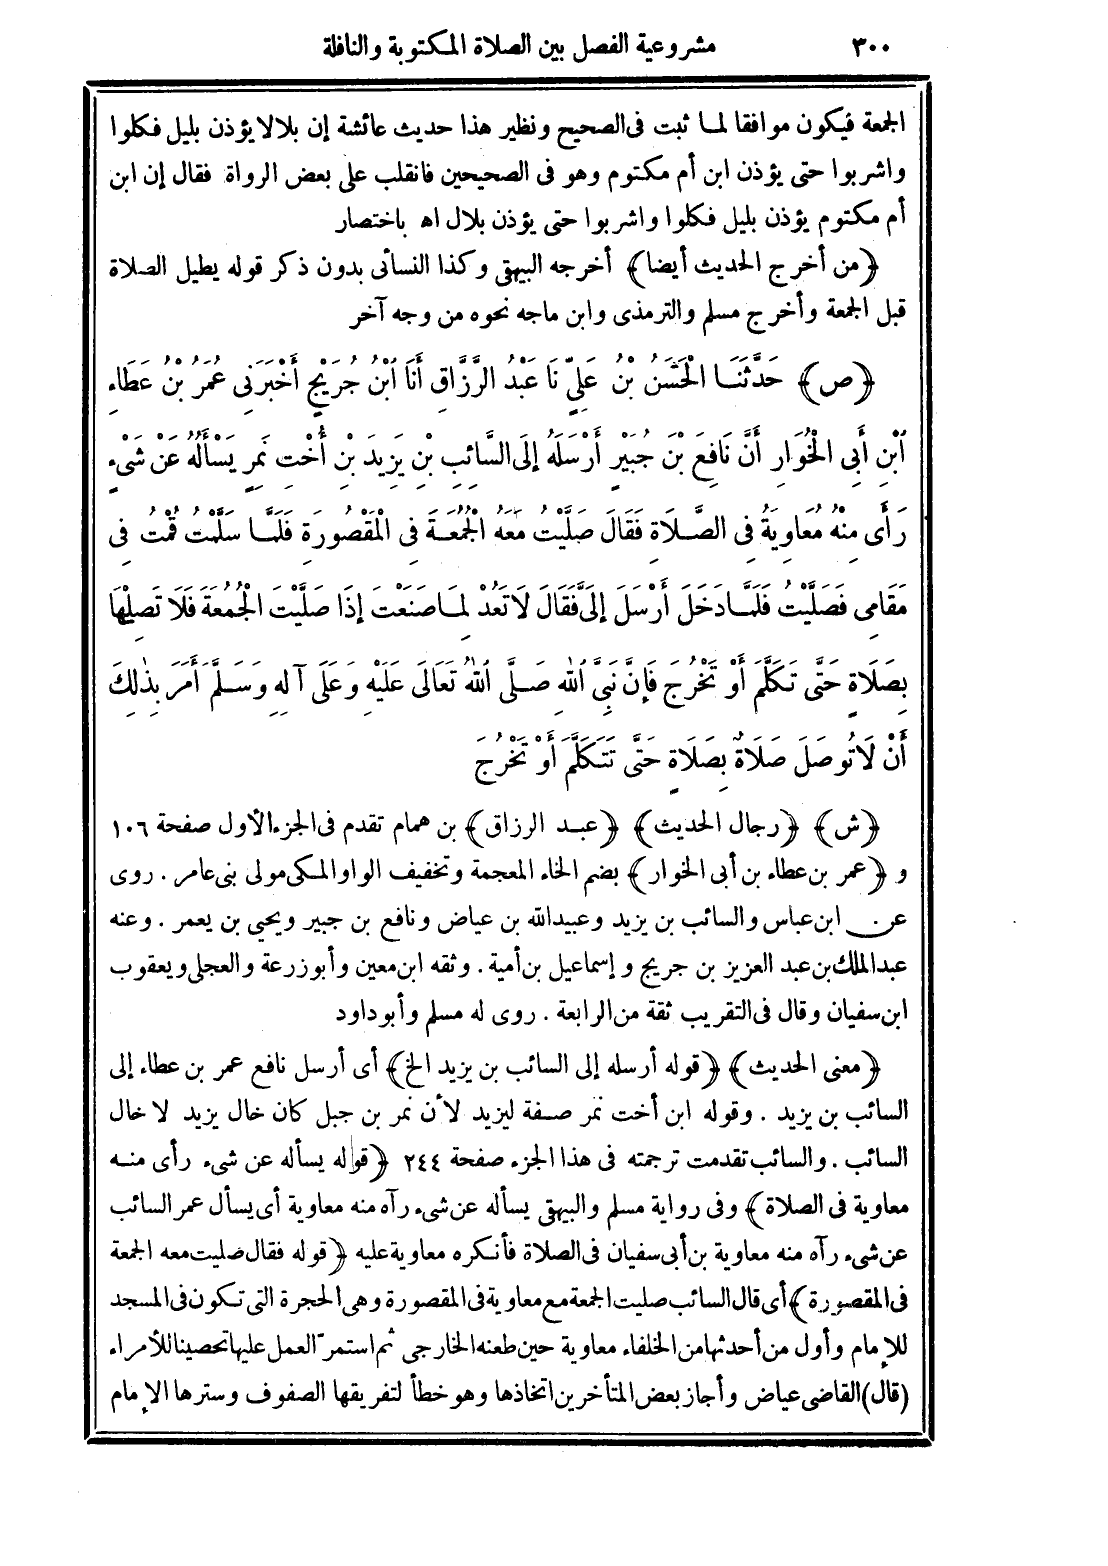 ٣٠٠ مشروعية الفصل بين الصلاة المكتوبة والنافلة
الجمعة فيكون موافقا لما ثبت فى الصحيح ونظير هذا حديث عائشة إن بلالا يؤذن بليل فكلوا
واشربوا حتى يؤذن ابن أم مكتوم وهو فى الصحيحين فانقلب على بعض الرواة فقال إن ابن
أم مكتوم يؤذن بليل فكلوا واشربوا حتى يؤذن بلال اه باختصار
﴿من أخرج الحديث أيضا﴾ أخرجه البيهقى وكذا النسائى بدون ذكر قوله يطيل الصلاة
قبل الجمعة وأخرج مسلم والترمذى وابن ماجه نحوه من وجه آخر
﴿ص﴾ حَدَّثَنَا الْحَسَنُ بْنُ عَلِيٍّ نَا عَبْدُ الرَّزَّاقِ أَنَا ابْنُ جُرَيْجٍ أَخْبَرَنِى عُمَرُ بْنُ عَطَاءِ
ابْنِ أَبِى الْخُوَارِ أَنَّ نَافِعَ بْنَ جُبَيْرٍ أَرْسَلَهُ إِلَى السَّائِبِ بْنِ يَزِيدَ بْنِ أُخْتِ نَمِرٍ يَسْأَلُهُ عَنْ شَىْءٍ
رَأَى مِنْهُ مُعَاوِيَةُ فِى الصَّلَاةِ فَقَالَ صَلَّيْتُ مَعَهُ الْجُمُعَةَ فِى الْمَقْصُورَةِ فَلَمَّا سَلَّمْتُ قُمْتُ فِى
مَقَامِى فَصَلَّيْتُ فَلَمَّا دَخَلَ أَرْسَلَ إِلَىَّ فَقَالَ لَا تَعُدْ لِمَا صَنَعْتَ إِذَا صَلَّيْتَ الْجُمُعَةَ فَلَا تَصِلْهَا
بِصَلَاةٍ حَتَّى تَكَلَّمَ أَوْ تَخْرُجَ فَإِنَّ نَبِىَّ اللهِ صَلَّى اللهُ تَعَالَى عَلَيْهِ وَعَلَى آلِهِ وَسَلَّمَ أَمَرَ بِذَلِكَ
أَنْ لَا تُوصَلَ صَلَاةٌ بِصَلَاةٍ حَتَّى تَتَكَلَّمَ أَوْ تَخْرُجَ
﴿ش﴾ ﴿رجال الحديث﴾ ﴿عبد الرزاق﴾ بن همام تقدم فى الجزء الأول صفحة ١٠٦
و ﴿عمر بن عطاء بن أبى الخوار﴾ بضم الخاء المعجمة وتخفيف الواو المكى مولى بنى عامر . روى
عن ابن عباس والسائب بن يزيد وعبيد الله بن عياض ونافع بن جبير ويحيى بن يعمر . وعنه
عبد الملك بن عبد العزيز بن جريج وإسماعيل بن أمية . وثقه ابن معين وأبو زرعة والعجلى ويعقوب
ابن سفيان وقال فى التقريب ثقة من الرابعة . روى له مسلم وأبو داود
﴿معنى الحديث﴾ ﴿قوله أرسله إلى السائب بن يزيد الخ﴾ أى أرسل نافع عمر بن عطاء إلى
السائب بن يزيد . وقوله ابن أخت نمر صفة ليزيد لأن نمر بن جبل كان خال يزيد لا خال
السائب . والسائب تقدمت ترجمته فى هذا الجزء صفحة ٢٤٤ ﴿قوله يسأله عن شىء رأى منه
معاوية فى الصلاة﴾ وفى رواية مسلم والبيهقى يسأله عن شىء رآه منه معاوية أى يسأل عمر السائب
عن شىء رآه منه معاوية بن أبى سفيان فى الصلاة فأنكره معاوية عليه ﴿قوله فقال صليت معه الجمعة
فى المقصورة﴾ أى قال السائب صليت الجمعة مع معاوية فى المقصورة وهى الحجرة التى تكون فى المسجد
للإمام وأول من أحدثها من الخلفاء معاوية حين طعنه الخارجى ثم استمرّ العمل عليها تحصينا للأمراء
(قال) القاضى عياض وأجاز بعض المتأخرين اتخاذها وهو خطأ لتفريقها الصفوف وسترها الإمام